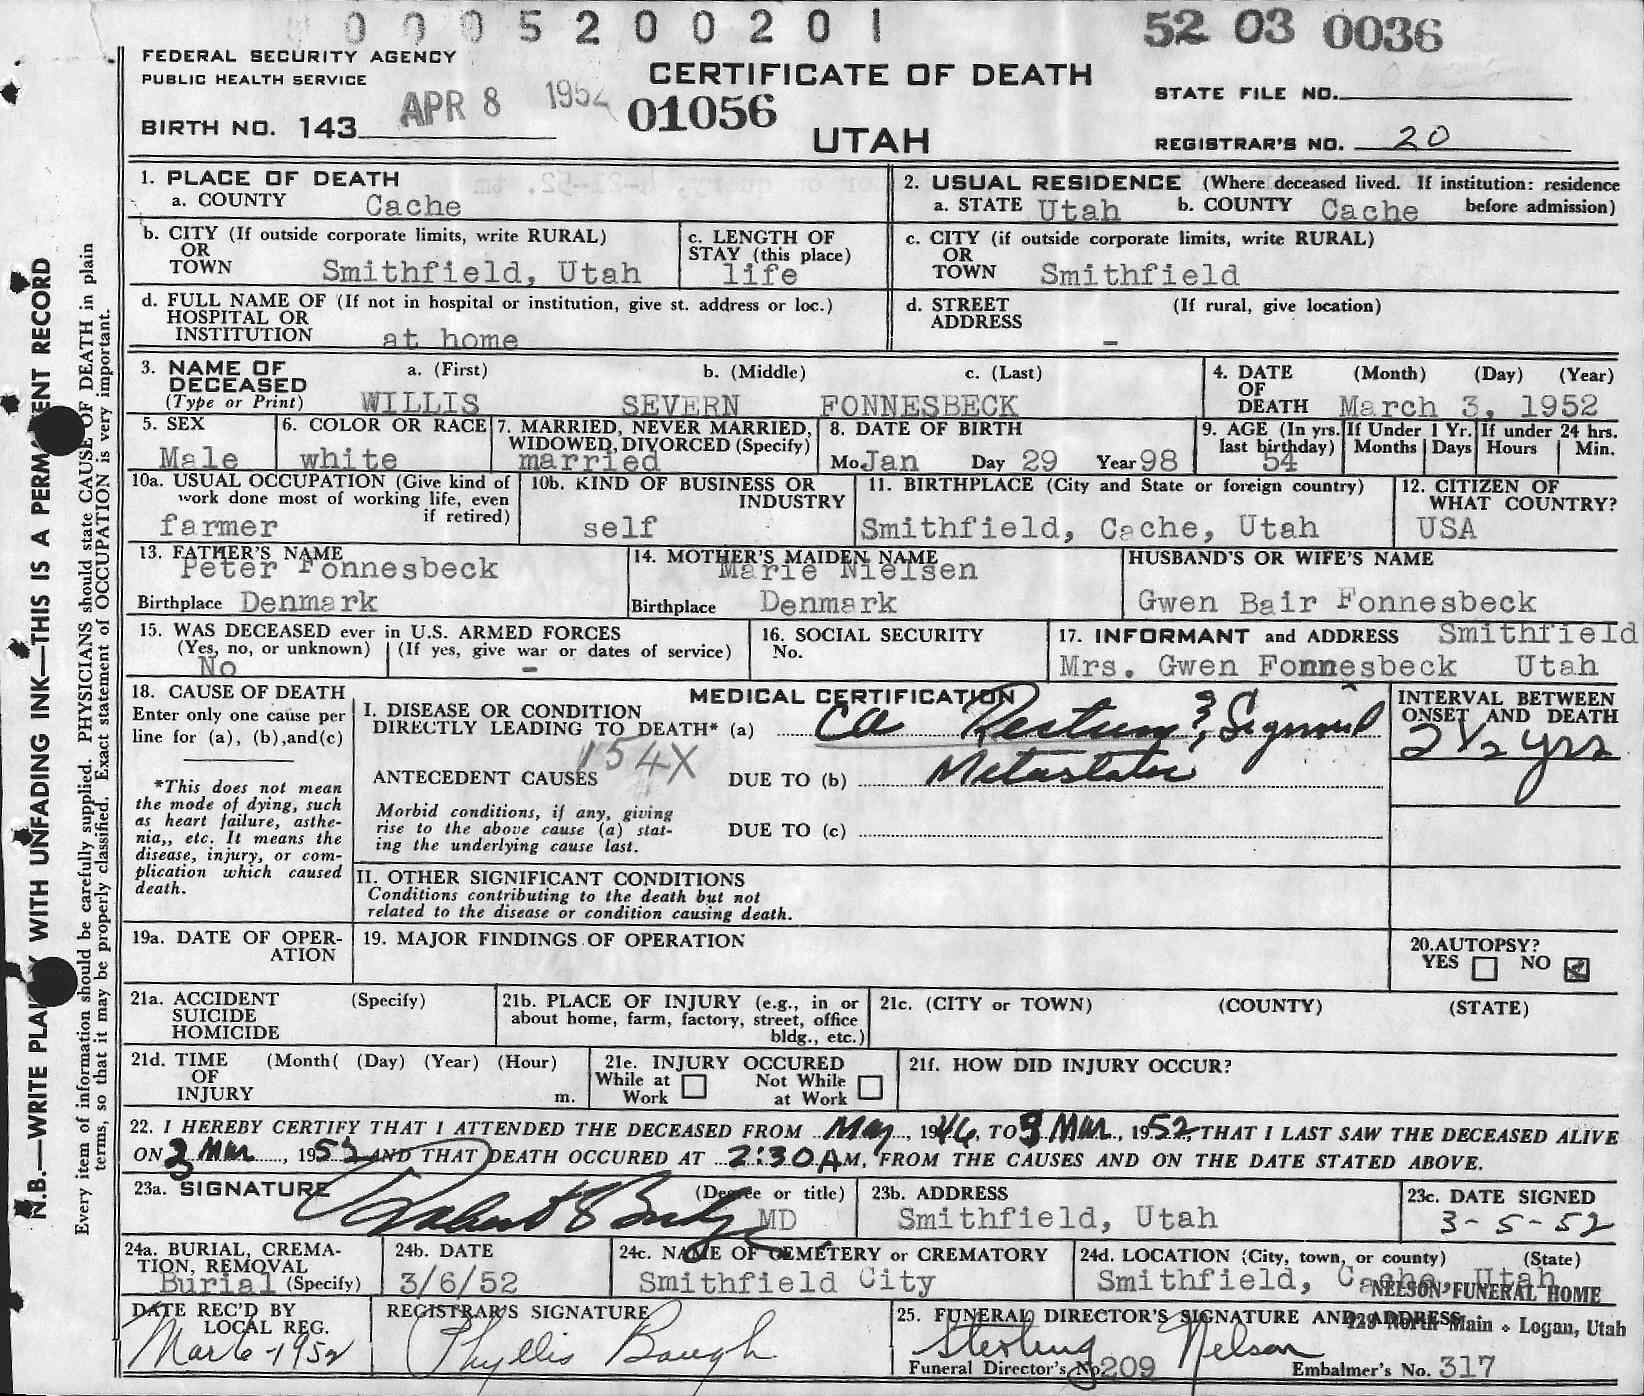 0 0 0 5 2 0 0 2 0 1
52 03 0036
FEDERAL SECURITY AGENCY
PUBLIC HEALTH SERVICE
CERTIFICATE OF DEATH
APR 8 1952
01056
STATE FILE NO.
BIRTH NO. 143
UTAH
REGISTRAR'S NO. 20
1. PLACE OF DEATH
a. COUNTY Cache
2. USUAL RESIDENCE (Where deceased lived. If institution: residence
a. STATE Utah b. COUNTY Cache before admission)
b. CITY (If outside corporate limits, write RURAL)
OR
TOWN Smithfield, Utah
c. LENGTH OF
STAY (this place)
life
c. CITY (if outside corporate limits, write RURAL)
OR
TOWN Smithfield
d. FULL NAME OF (If not in hospital or institution, give st. address or loc.)
HOSPITAL OR
INSTITUTION at home
d. STREET (If rural, give location)
ADDRESS -
3. NAME OF a. (First) b. (Middle) c. (Last)
DECEASED
(Type or Print) WILLIS SEVERN FONNESBECK
4. DATE (Month) (Day) (Year)
OF
DEATH March 3, 1952
5. SEX
Male
6. COLOR OR RACE
white
7. MARRIED, NEVER MARRIED,
WIDOWED, DIVORCED (Specify)
married
8. DATE OF BIRTH
Mo Jan Day 29 Year 98
9. AGE (In yrs.
last birthday)
54
If Under 1 Yr.
Months Days
If under 24 hrs.
Hours Min.
10a. USUAL OCCUPATION (Give kind of
work done most of working life, even
if retired)
farmer
10b. KIND OF BUSINESS OR
INDUSTRY
self
11. BIRTHPLACE (City and State or foreign country)
Smithfield, Cache, Utah
12. CITIZEN OF
WHAT COUNTRY?
USA
13. FATHER'S NAME
Peter Fonnesbeck
Birthplace Denmark
14. MOTHER'S MAIDEN NAME
Marie Nielsen
Birthplace Denmark
HUSBAND'S OR WIFE'S NAME
Gwen Bair Fonnesbeck
15. WAS DECEASED ever in U.S. ARMED FORCES
(Yes, no, or unknown) (If yes, give war or dates of service)
No -
16. SOCIAL SECURITY
No.
17. INFORMANT and ADDRESS Smithfield
Mrs. Gwen Fonnesbeck Utah
18. CAUSE OF DEATH
Enter only one cause per
line for (a), (b),and(c)
*This does not mean
the mode of dying, such
as heart failure, asthe-
nia,, etc. It means the
disease, injury, or com-
plication which caused
death.
MEDICAL CERTIFICATION
I. DISEASE OR CONDITION
DIRECTLY LEADING TO DEATH* (a) Ca Rectum & Sigmoid
154X
ANTECEDENT CAUSES DUE TO (b) Metastatic
Morbid conditions, if any, giving
rise to the above cause (a) stat-
ing the underlying cause last.
DUE TO (c)
INTERVAL BETWEEN
ONSET AND DEATH
2 1/2 yrs
II. OTHER SIGNIFICANT CONDITIONS
Conditions contributing to the death but not
related to the disease or condition causing death.
19a. DATE OF OPER-
ATION
19. MAJOR FINDINGS OF OPERATION
20.AUTOPSY?
YES NO
21a. ACCIDENT (Specify)
SUICIDE
HOMICIDE
21b. PLACE OF INJURY (e.g., in or
about home, farm, factory, street, office
bldg., etc.)
21c. (CITY or TOWN) (COUNTY) (STATE)
21d. TIME (Month( (Day) (Year) (Hour)
OF
INJURY m.
21e. INJURY OCCURED
While at Not While
Work at Work
21f. HOW DID INJURY OCCUR?
22. I HEREBY CERTIFY THAT I ATTENDED THE DECEASED FROM May, 1946, TO 3 Mar, 1952, THAT I LAST SAW THE DECEASED ALIVE
ON 3 Mar, 1952 AND THAT DEATH OCCURED AT 2:30 A.M, FROM THE CAUSES AND ON THE DATE STATED ABOVE.
23a. SIGNATURE (Degree or title)
Robert MD
23b. ADDRESS
Smithfield, Utah
23c. DATE SIGNED
3-5-52
24a. BURIAL, CREMA-
TION, REMOVAL
Burial (Specify)
24b. DATE
3/6/52
24c. NAME OF CEMETERY or CREMATORY
Smithfield City
24d. LOCATION (City, town, or county) (State)
Smithfield, Cache, Utah
NELSON FUNERAL HOME
DATE REC'D BY
LOCAL REG.
Mar 6-1952
REGISTRAR'S SIGNATURE
Phyllis Baugh
25. FUNERAL DIRECTOR'S SIGNATURE AND ADDRESS
North Main • Logan, Utah
Sterling Nelson
Funeral Director's No 209 Embalmer's No. 317
N.B.—WRITE PLAINLY WITH UNFADING INK—THIS IS A PERMANENT RECORD
Every item of information should be carefully supplied. PHYSICIANS should state CAUSE OF DEATH in plain
terms, so that it may be properly classified. Exact statement of OCCUPATION is very important.